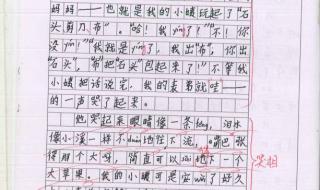 妈妈——也就是我的小姨玩起了“石
头剪刀布”。“哈！我yíng了！”“不！你
没yíng！”“我就是yíng了，我出‘布’，你出
‘石头’，‘布’把‘石头’包起来了！”不等我
小姨把话说完，我的表弟就“哇——”
的一声哭了起来。
他哭起来眼睛像一条缝，泪水
像小溪一样不duàn地往下流，嘴巴张
得那个大呀，简直可以sāi地下一个
大苹果。我的小姨可是安wèi了好久
哭相